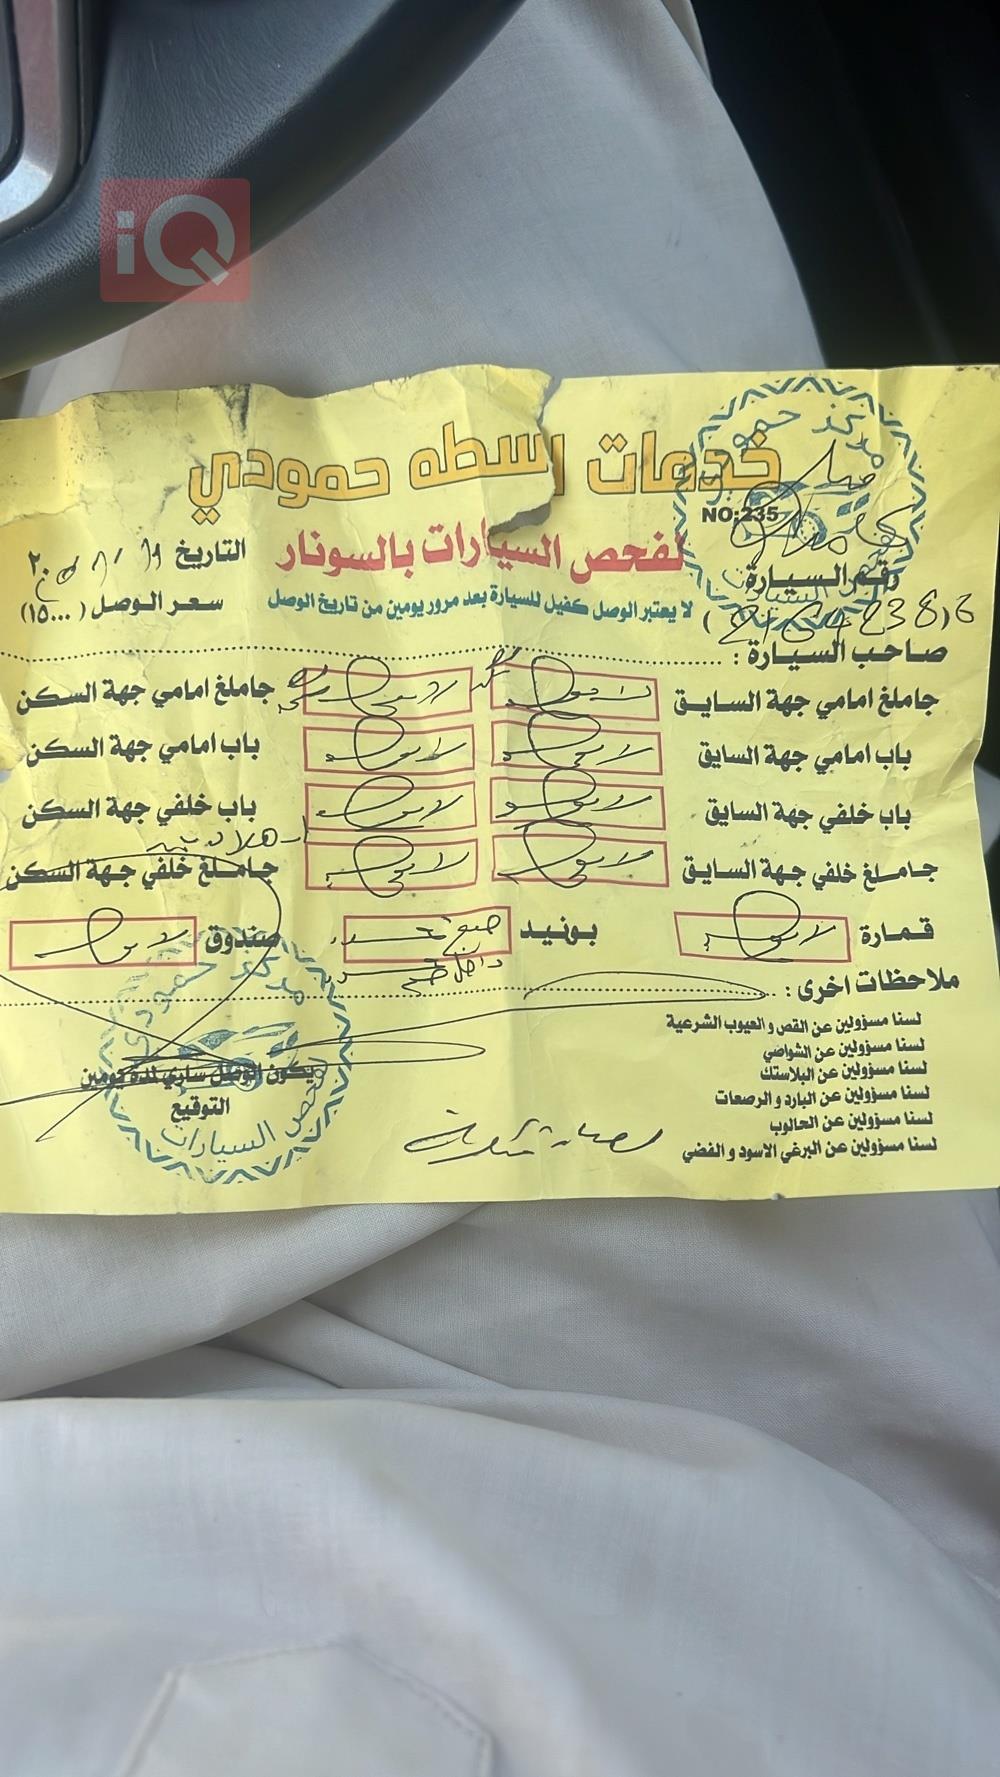 iQ
خدمات اسطه حمودي
NO:235
لفحص السيارات بالسونار
التاريخ
٢٠
رقم السيارة
سعر الوصل (١٥٠٠٠)
لا يعتبر الوصل كفيل للسيارة بعد مرور يومين من تاريخ الوصل
صاحب السيارة :
جاملغ امامي جهة السايق
جاملغ امامي جهة السكن
باب امامي جهة السايق لا يوجد
لا يوجد باب امامي جهة السكن
باب خلفي جهة السايق لا يوجد
لا يوجد باب خلفي جهة السكن
جاملغ خلفي جهة السايق لا يوجد
لا يوجد جاملغ خلفي جهة السكن
قمارة لا يوجد
بونيد صبغ
صندوق لا يوجد
داخل
ملاحظات اخرى :
لسنا مسؤولين عن القص و العيوب الشرعية
لسنا مسؤولين عن الشواصي
لسنا مسؤولين عن البلاستك
لسنا مسؤولين عن البارد و الرصعات
لسنا مسؤولين عن الحالوب
لسنا مسؤولين عن البرغي الاسود و الفضي
يكون الوصل ساري لمدة يومين
التوقيع
مركز حمودي
لفحص السيارات